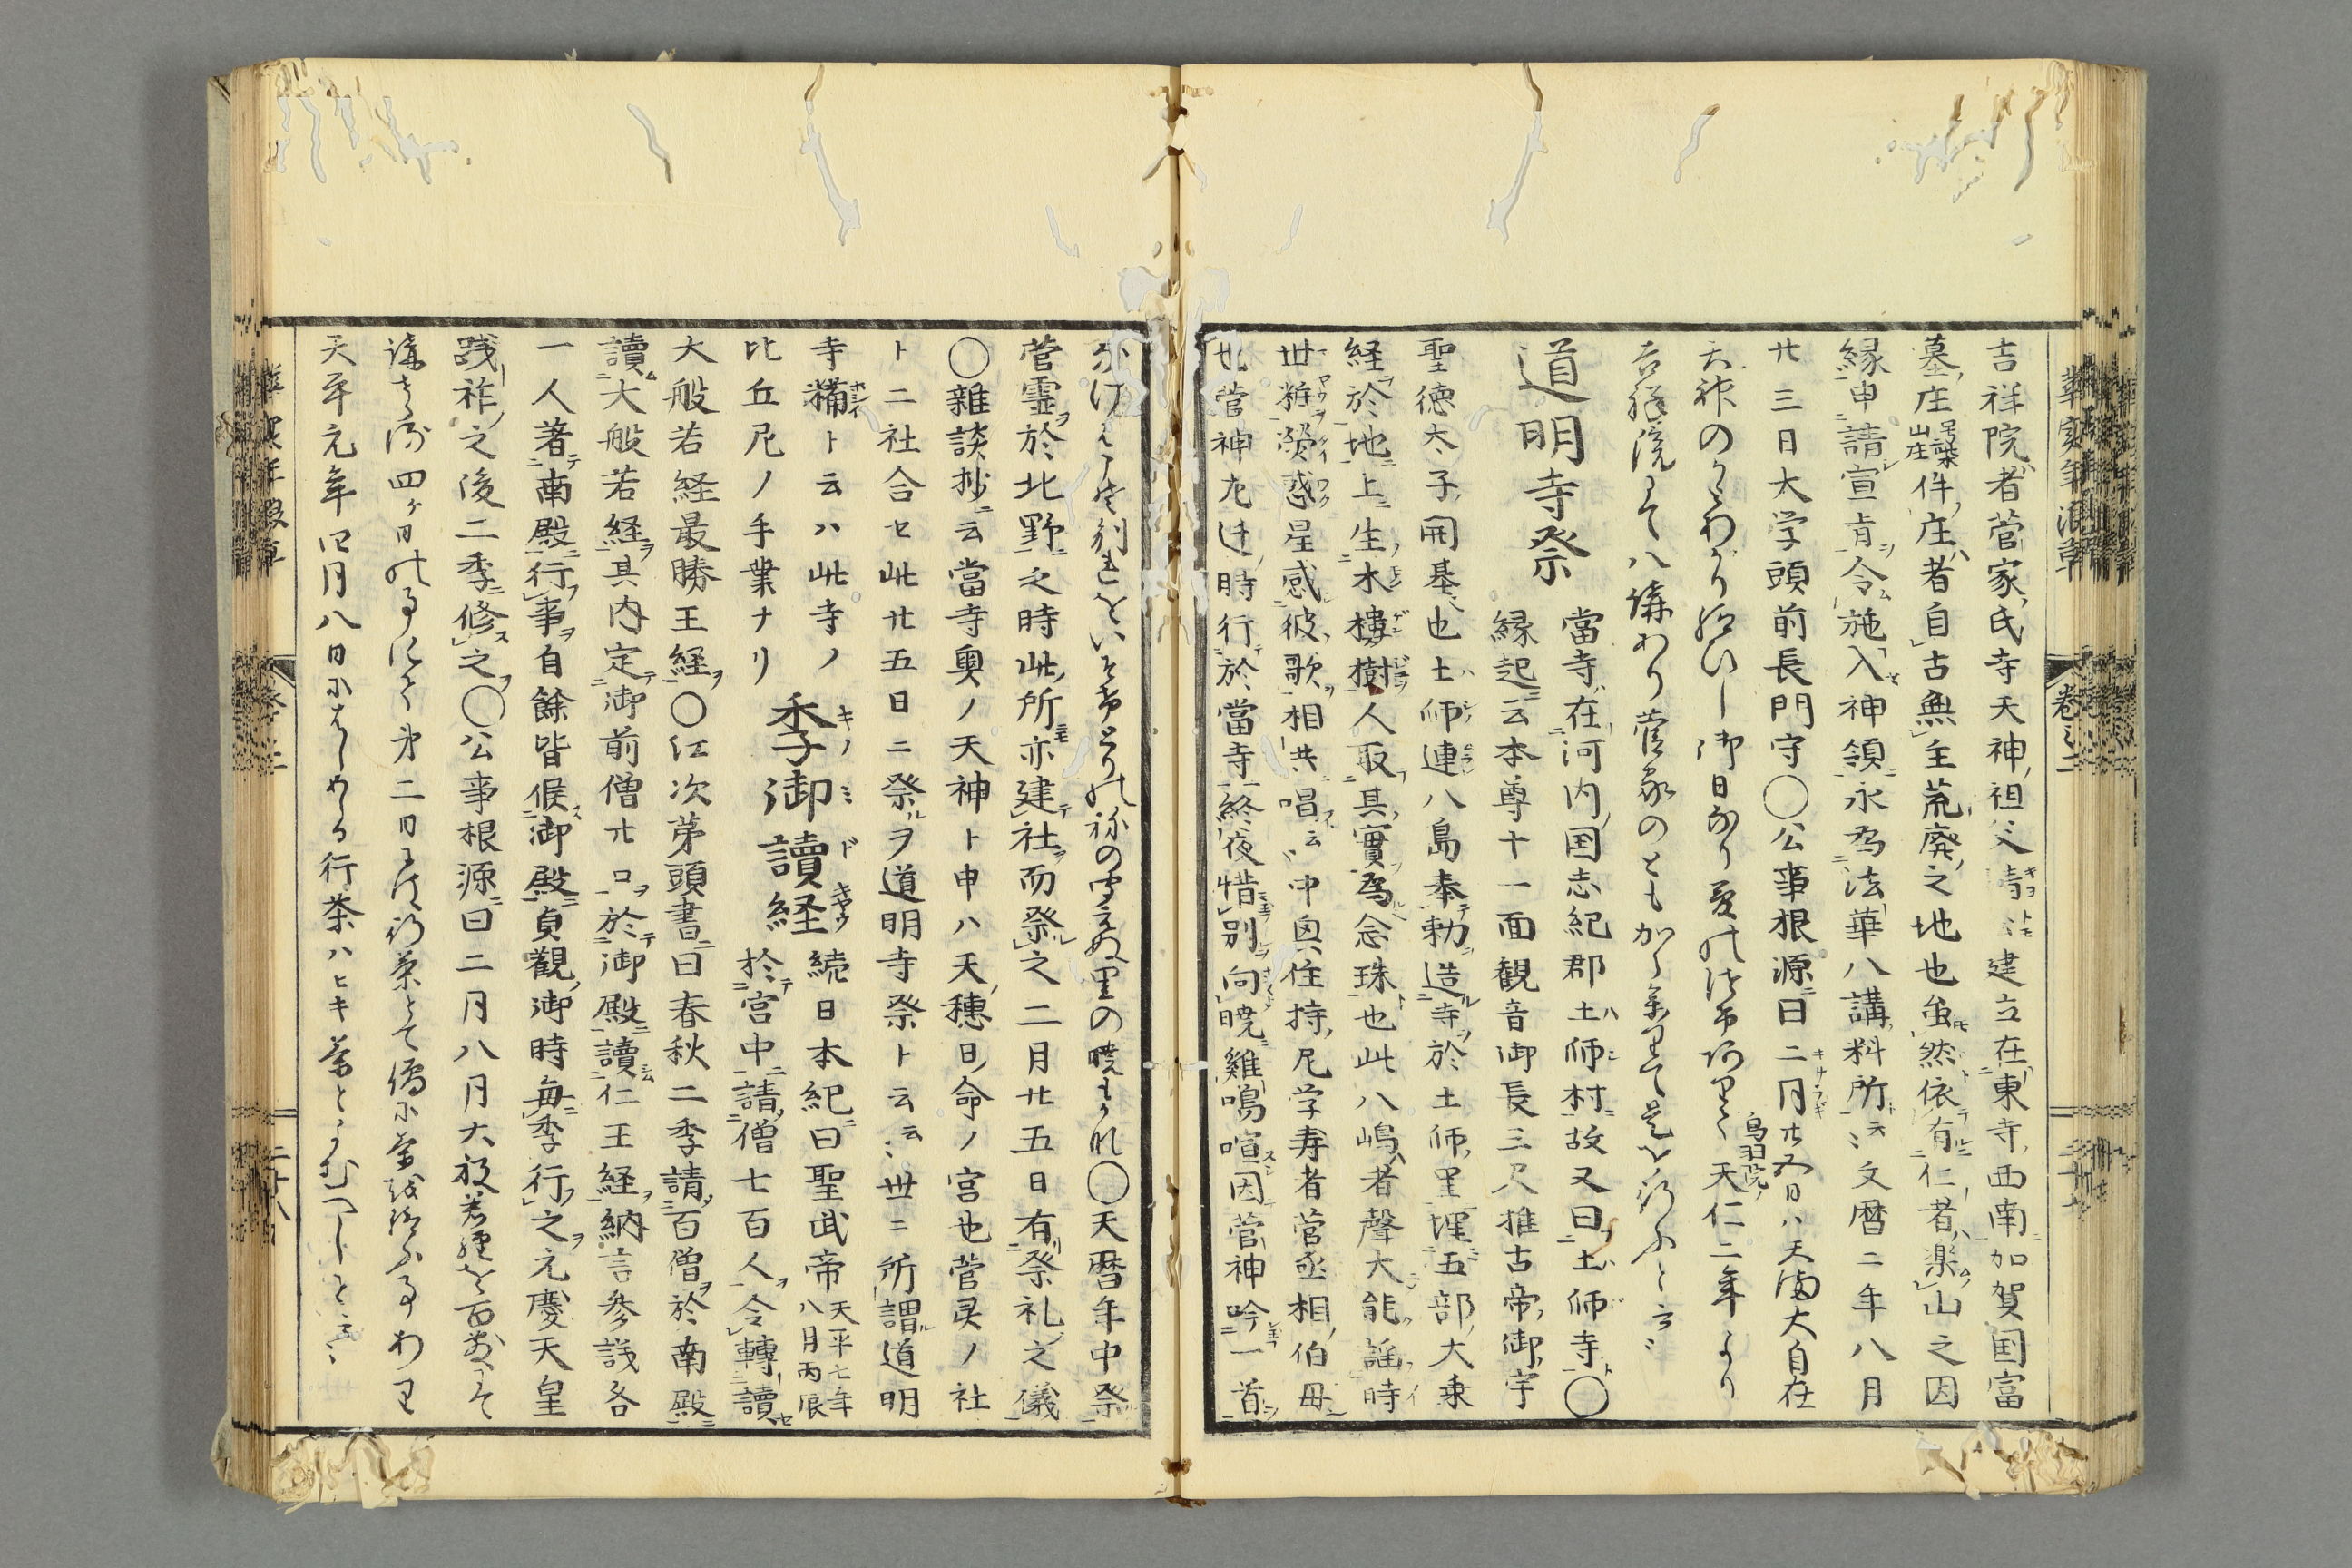 吉祥院者菅家氏寺天神祖父清〻建立在東寺西南加賀国富
墓庄号築山庄件庄者自古無主荒廃之地也虽然依有仁者楽山之因
縁申請宣旨令施入神領永為法華八講料所云〻文暦二年八月
廿三日大学頭前長門守〇公事根源曰二月廿五日ハ天満大自在
天神の
鳥羽院天仁二年より
吉祥院にて八講あり菅家のともから
道明寺祭
當寺在河内国志紀郡土師村故又曰土師寺〇
縁起云本尊十一面観音御長三尺推古帝御宇
聖德太子開基也土師連八島奉勅造寺於土師里埋五部大乗
経於地上生木槵樹人取其實為念珠也此八嶋者聲大能謡時
世粧熒惑星感彼歌相共唱云中凶住持尼学寿者菅丞相伯母
也菅神左迁時行於當寺終夜惜別向暁雞鳴喧因菅神吟一首
里の暁もかれ〇天暦年中祭
菅霊於北野之時此所亦建社而祭之二月廿五日有祭礼之儀
〇雜談抄云當寺奥ノ天神ト申ハ天穗日命ノ宮也菅灵ノ社
ト二社合セ此廿五日ニ祭ルヲ道明寺祭ト云云〻世ニ所謂道明
寺糒ト云ハ此寺ノ
比丘尼ノ手業ナリ
季御讀経
続日本紀曰聖武帝天平七年八月丙辰
於宮中請僧七百人令轉讀
大般若経最勝王経〇江次苐頭書曰春秋二季請百僧於南殿
讀大般若経其内定御前僧廿口於御殿讀仁王経納言参議各
一人著南殿行事自餘皆候御殿貞觀御時毎季行之元慶天皇
践祚之後二季修之〇公事根源曰二月八月大般若経を百敷にて
講
四ヶ日の事にて第二日には引茶とて僧に茶を給ふ事あり
天平元年四月八日にはしめらる行茶ハヒキ茶とよむへしと云〻
華実年浪草
巻之二